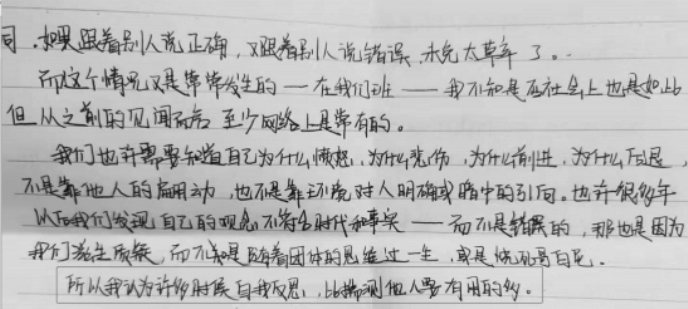 同.如果跟着别人说正确,又跟着别人说错误,未免太草率了。
而这个情况又是常常发生的——在我们班——我不知是否社会上也是如此
但从之前的见闻而言 至少网络上是常有的。
我们也许需要知道自己为什么愤怒,为什么悲伤,为什么前进,为什么后退,
不是靠他人的煽动,也不是靠环境对人明确或暗中的引向。也许很多年
以后我们发现自己的观念不符合时代和事实——而不是错误的,那也是因为
我们发生质疑,而不是随着团体的思维过一生,或是
所以我认为许多时候自我反思,比揣测他人要有用的多。